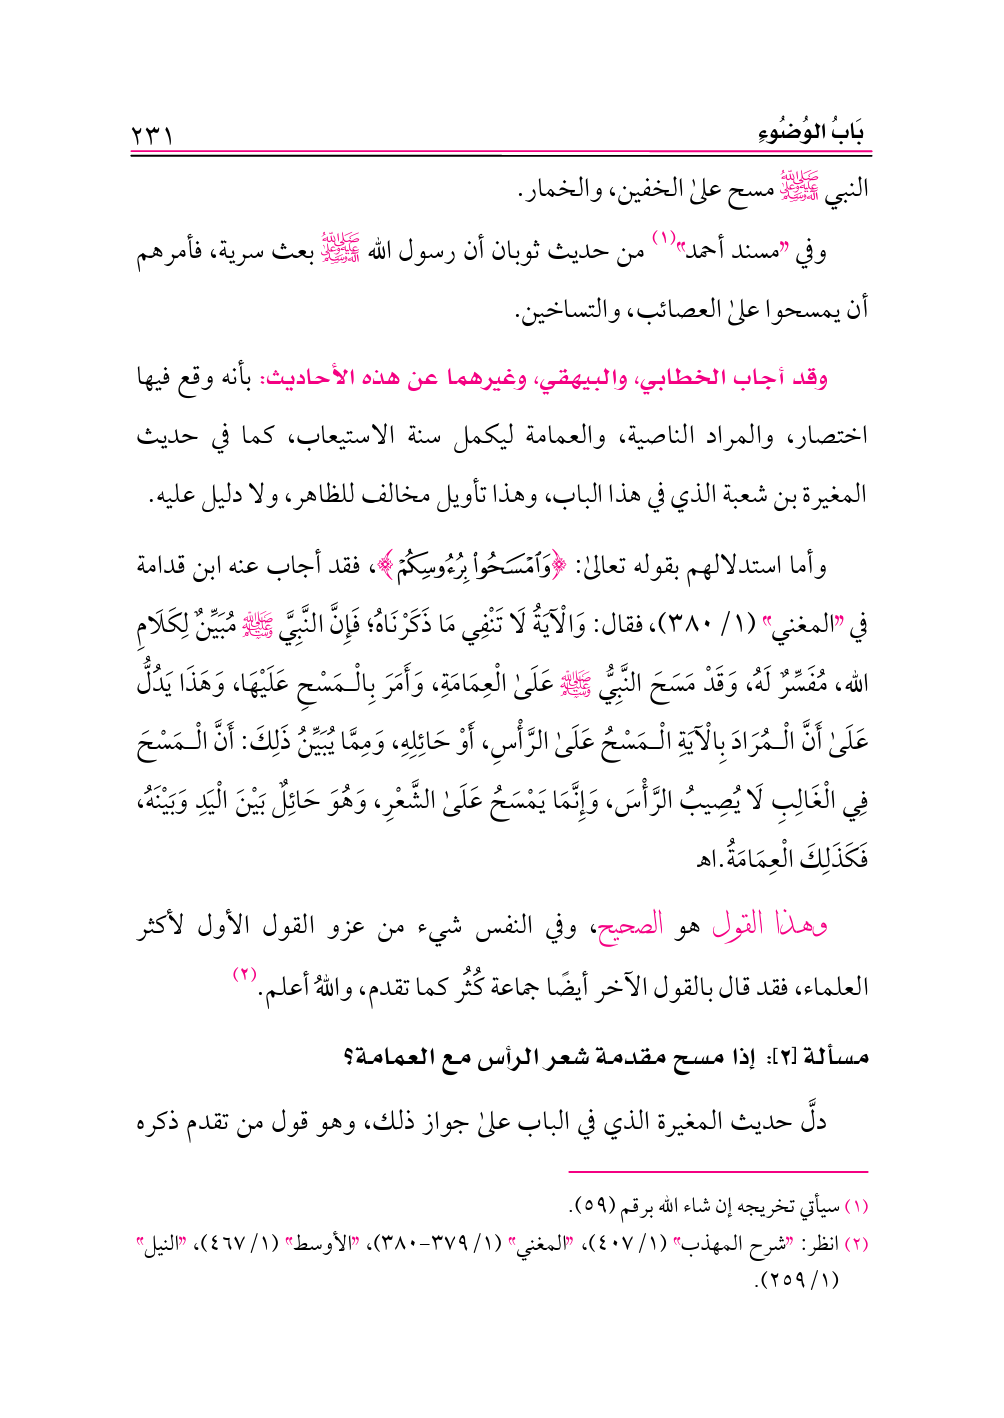 بَابُ الوُضُوءِ ٢٣١
النبي ﷺ مسح علىٰ الخفين، والخمار.
وفي "مسند أحمد"(١) من حديث ثوبان أن رسول الله ﷺ بعث سرية، فأمرهم
أن يمسحوا علىٰ العصائب، والتساخين.
وقد أجاب الخطابي، والبيهقي، وغيرهما عن هذه الأحاديث: بأنه وقع فيها
اختصار، والمراد الناصية، والعمامة ليكمل سنة الاستيعاب، كما في حديث
المغيرة بن شعبة الذي في هذا الباب، وهذا تأويل مخالف للظاهر، ولا دليل عليه.
وأما استدلالهم بقوله تعالىٰ: ﴿وَٱمۡسَحُواْ بِرُءُوسِكُمۡ﴾، فقد أجاب عنه ابن قدامة
في "المغني" (١/ ٣٨٠)، فقال: وَالْآيَةُ لَا تَنْفِي مَا ذَكَرْنَاهُ؛ فَإِنَّ النَّبِيَّ ﷺ مُبَيِّنٌ لِكَلَامِ
الله، مُفَسِّرٌ لَهُ، وَقَدْ مَسَحَ النَّبِيُّ ﷺ عَلَىٰ الْعِمَامَةِ، وَأَمَرَ بِالْـمَسْحِ عَلَيْهَا، وَهَذَا يَدُلُّ
عَلَىٰ أَنَّ الْـمُرَادَ بِالْآيَةِ الْـمَسْحُ عَلَىٰ الرَّأْسِ، أَوْ حَائِلِهِ، وَمِمَّا يُبَيِّنُ ذَلِكَ: أَنَّ الْـمَسْحَ
فِي الْغَالِبِ لَا يُصِيبُ الرَّأْسَ، وَإِنَّمَا يَمْسَحُ عَلَىٰ الشَّعْرِ، وَهُوَ حَائِلٌ بَيْنَ الْيَدِ وَبَيْنَهُ،
فَكَذَلِكَ الْعِمَامَةُ.اهـ
وهذا القول هو الصحيح، وفي النفس شيء من عزو القول الأول لأكثر
العلماء، فقد قال بالقول الآخر أيضًا جماعة كُثُر كما تقدم، واللهُ أعلم.(٢)
مسألة [٢]: إذا مسح مقدمة شعر الرأس مع العمامة؟
دلَّ حديث المغيرة الذي في الباب علىٰ جواز ذلك، وهو قول من تقدم ذكره
(١) سيأتي تخريجه إن شاء الله برقم (٥٩).
(٢) انظر: "شرح المهذب" (١/ ٤٠٧)، "المغني" (١/ ٣٧٩-٣٨٠)، "الأوسط" (١/ ٤٦٧)، "النيل"
(١/ ٢٥٩).